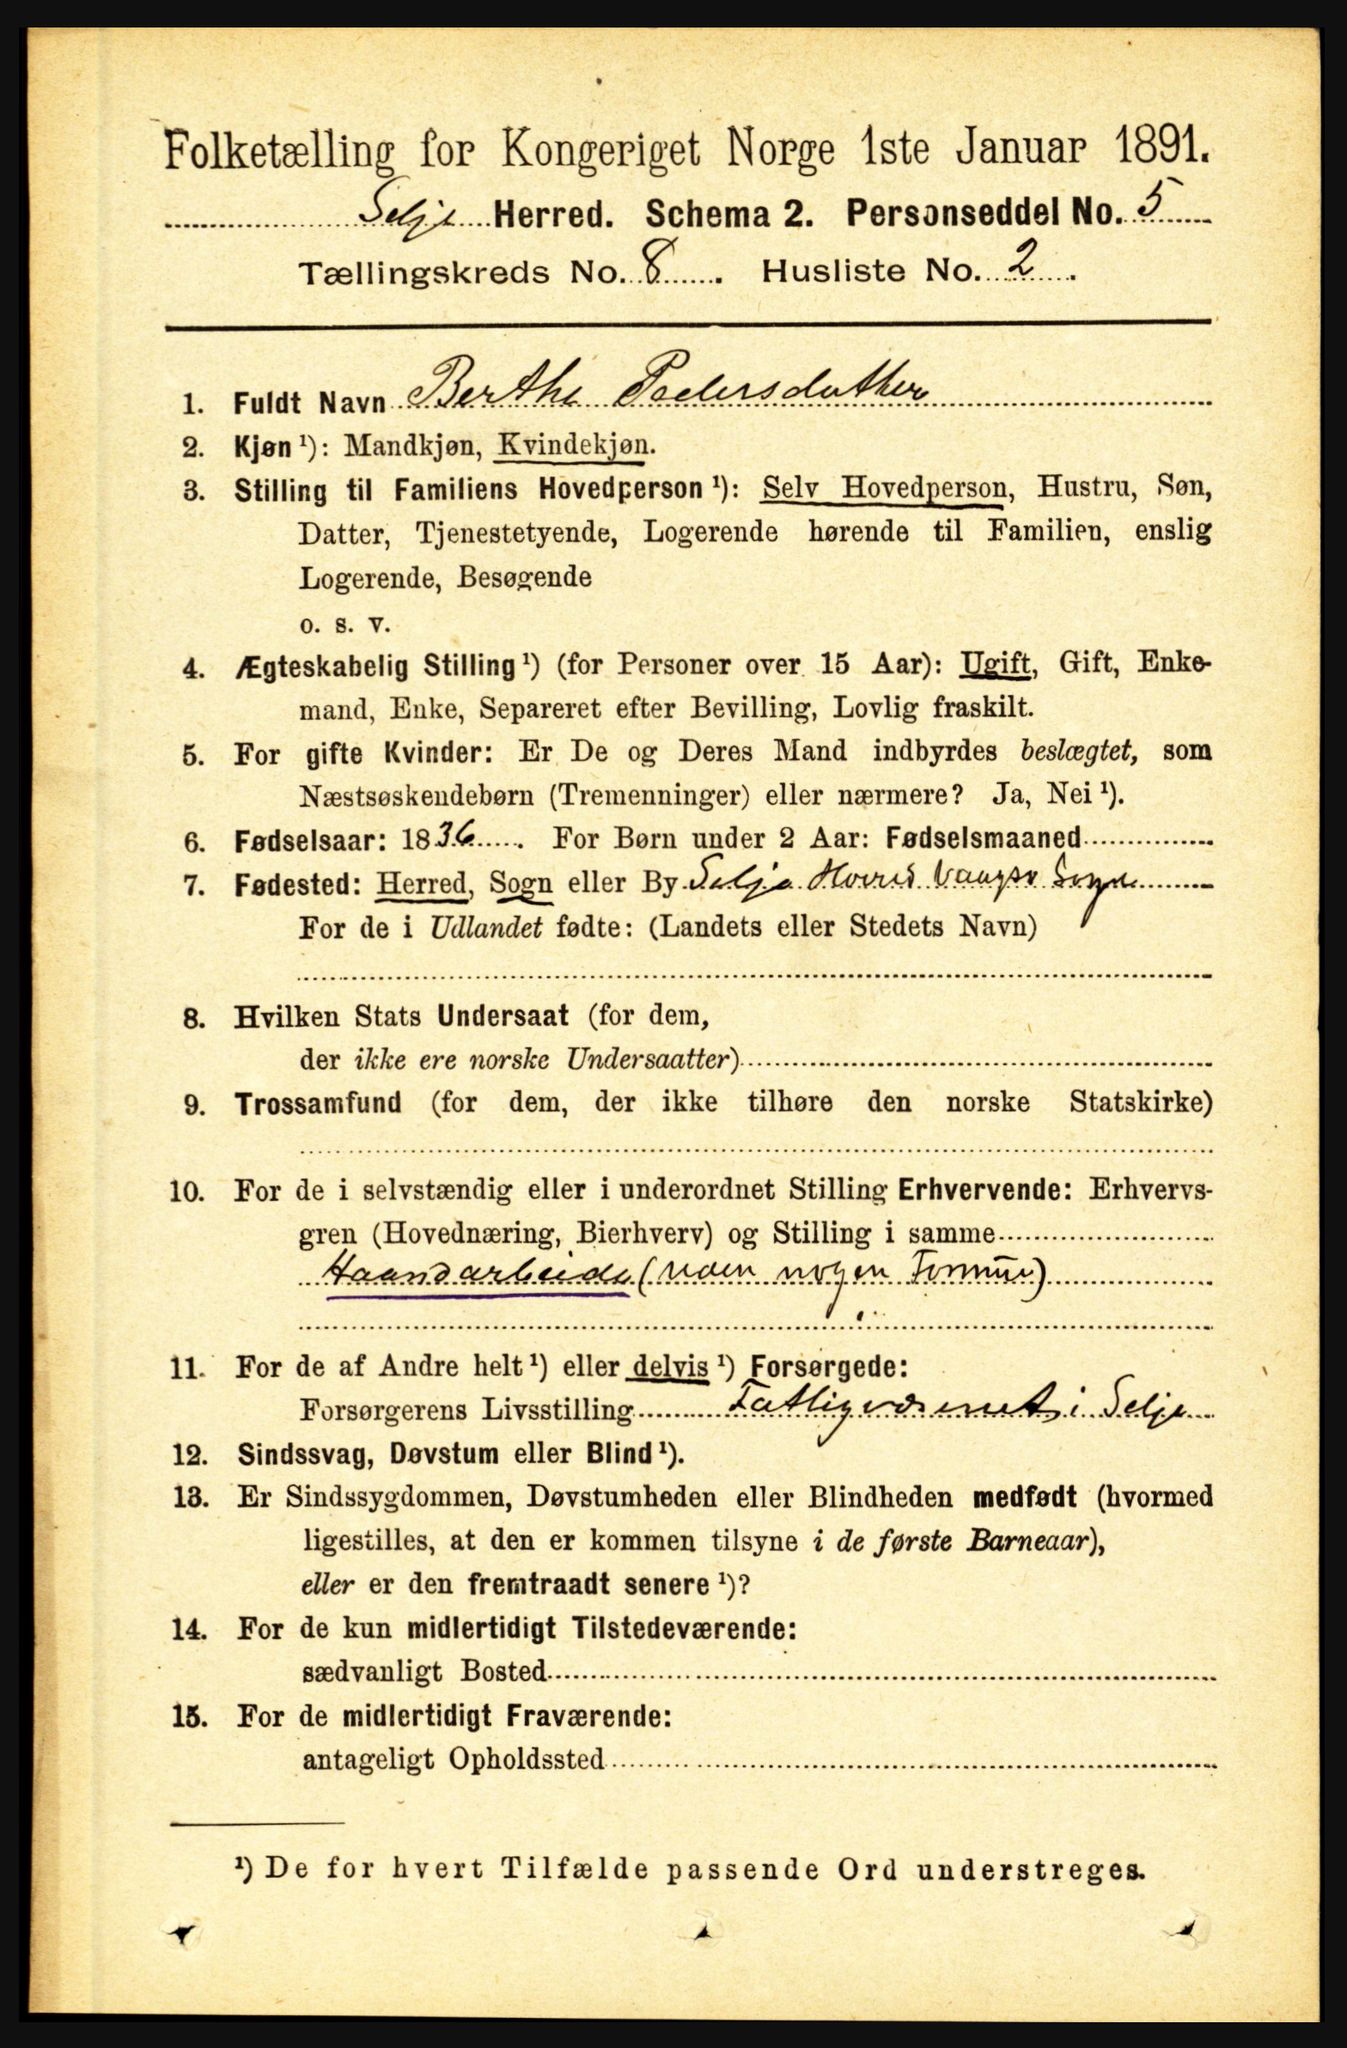 Folketælling for Kongeriget Norge 1ste Januar 1891.
Selje Herred. Schema 2. Personseddel No. 5
Tællingskreds No. 8. Husliste No. 2.
1. Fuldt Navn Berthe Pedersdatter
2. Kjøn ¹): Mandkjøn, Kvindekjøn.
3. Stilling til Familiens Hovedperson ¹): Selv Hovedperson, Hustru, Søn,
Datter, Tjenestetyende, Logerende hørende til Familien, enslig
Logerende, Besøgende
o. s. v.
4. Ægteskabelig Stilling ¹) (for Personer over 15 Aar): Ugift, Gift, Enke-
mand, Enke, Separeret efter Bevilling, Lovlig fraskilt.
5. For gifte Kvinder: Er De og Deres Mand indbyrdes beslægtet, som
Næstsøskendebørn (Tremenninger) eller nærmere? Ja, Nei ¹).
6. Fødselsaar: 1836. For Børn under 2 Aar: Fødselsmaaned
7. Fødested: Herred, Sogn eller By Selje Herred Vaagsø Sogn
For de i Udlandet fødte: (Landets eller Stedets Navn)
8. Hvilken Stats Undersaat (for dem,
der ikke ere norske Undersaatter)
9. Trossamfund (for dem, der ikke tilhøre den norske Statskirke)
10. For de i selvstændig eller i underordnet Stilling Erhvervende: Erhvervs-
gren (Hovednæring, Bierhverv) og Stilling i samme
Haandarbeide (uden nogen Formue)
11. For de af Andre helt ¹) eller delvis ¹) Forsørgede:
Forsørgerens Livsstilling Fattigvæsenet i Selje
12. Sindssvag, Døvstum eller Blind ¹).
13. Er Sindssygdommen, Døvstumheden eller Blindheden medfødt (hvormed
ligestilles, at den er kommen tilsyne i de første Barneaar),
eller er den fremtraadt senere ¹)?
14. For de kun midlertidigt Tilstedeværende:
sædvanligt Bosted
15. For de midlertidigt Fraværende:
antageligt Opholdssted
¹) De for hvert Tilfælde passende Ord understreges.